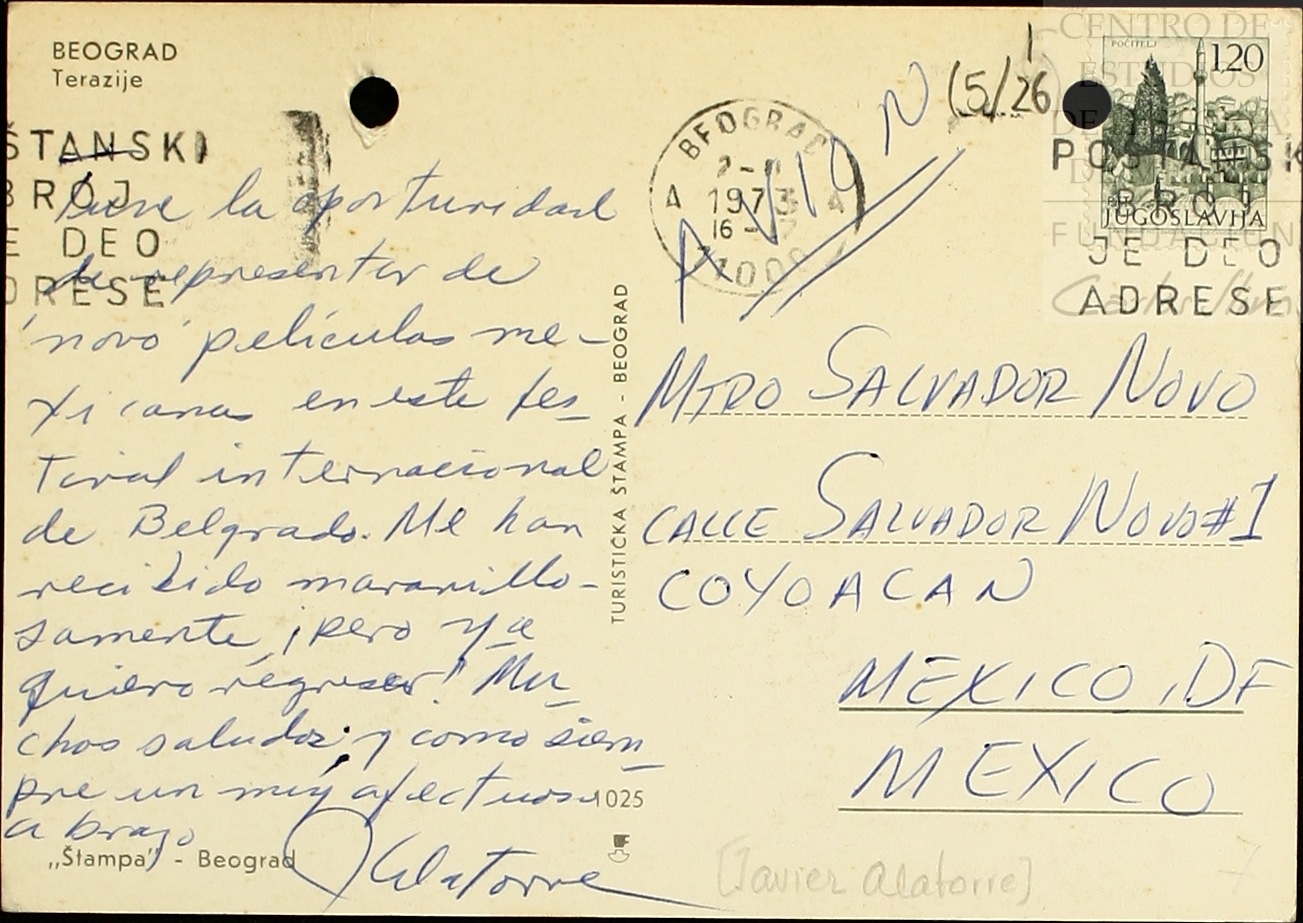 BEOGRAD
Terazije
ŠTANSKI
BROJ
E DEO
DRESE
Tuve la oportunidad
de representar de
'novo' películas me-
xicanas en este fes-
tival internacional
de Belgrado. Me han
recibido maravillo-
samente, ¡pero ya
quiero regresar! Mu-
chos saludos y como siem-
pre un muy afectuoso
abrazo
Alatorre
„Štampa" - Beograd
TURISTIČKA ŠTAMPA - BEOGRAD
1025
(5/26
BEOGRAD
1973
16-
A A
11000
AVION
CENTRO DE
ESTUDIOS
DE
FUNDACIÓN
POČITELJ
1,20
JUGOSLAVIJA
POŠTANSK
BROJ
JE DEO
ADRESE
MTRO SALVADOR NOVO
CALLE SALVADOR NOVO #1
COYOACAN
MEXICO, DF
MEXICO
[Javier Alatorre]
7